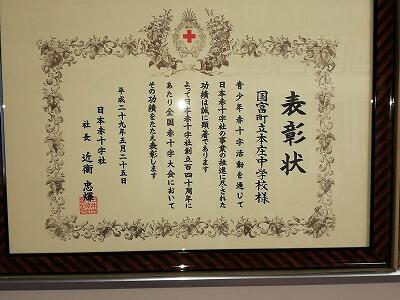 表彰状
国富町立本庄中学校様
青少年赤十字活動を通じて
日本赤十字社の事業の推進に尽された
功績は誠に顕著であります
よって日本赤十字社創立百四十周年に
あたり全国赤十字大会において
その功績をたたえ表彰します
平成二十九年五月二十五日
日本赤十字社
社長 近衞忠煇